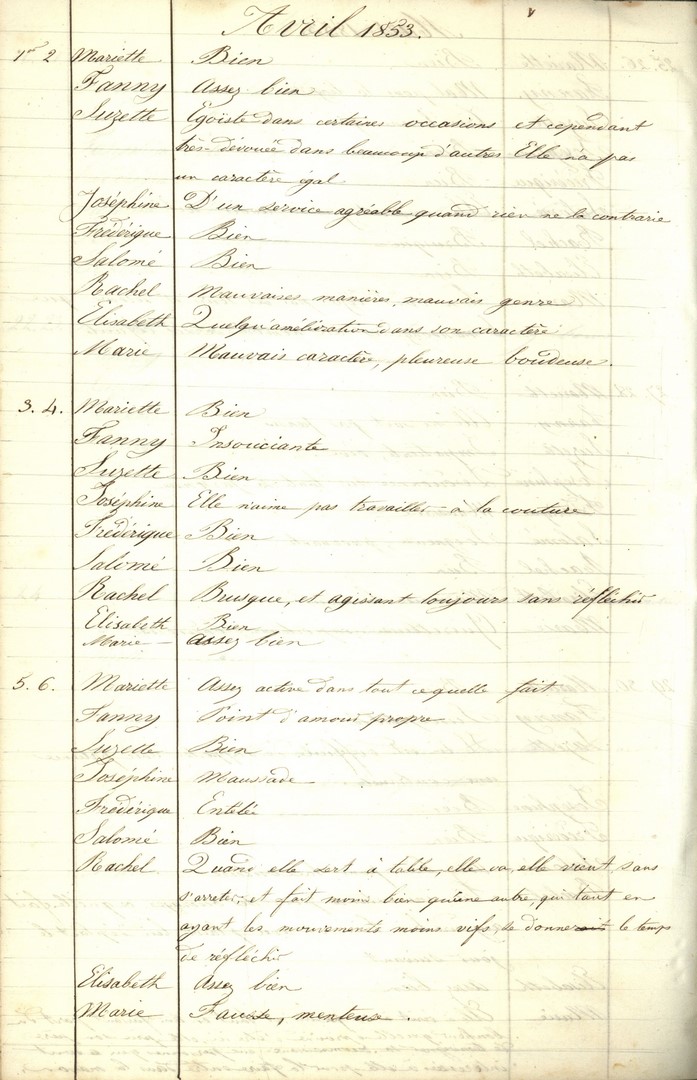 Avril 1853.
1er 2 Mariette Bien
Fanny Assez bien
Suzette Egoïste dans certaines occasions et cependant
très-dévouée dans beaucoup d'autres Elle n'a pas
un caractère égal
Joséphine D'un service agréable quand rien ne la contrarie
Frédérique Bien
Salomé Bien
Rachel Mauvaises manières, mauvais genre
Elisabeth Quelqu'amélioration dans son caractère
Marie Mauvais caractère, pleureuse boudeuse.
3. 4. Mariette Bien
Fanny Insouciante
Suzette Bien
Joséphine Elle n'aime pas travailler à la couture
Frédérique Bien
Salomé Bien
Rachel Brusque, et agissant toujours sans réfléchir
Elisabeth Bien
Marie Assez bien
5. 6. Mariette Assez active dans tout ce quelle fait
Fanny Point d'amour propre
Suzette Bien
Joséphine Maussade
Frédérique Entêtée
Salomé Bien
Rachel Quand elle sert à table, elle va, elle vient, sans
s'arrêter; et fait moins bien qu'une autre, qui tout en
ayant les mouvements moins vifs, se donnerait le temps
de réfléchir
Elisabeth Assez bien
Marie Fausse, menteuse.